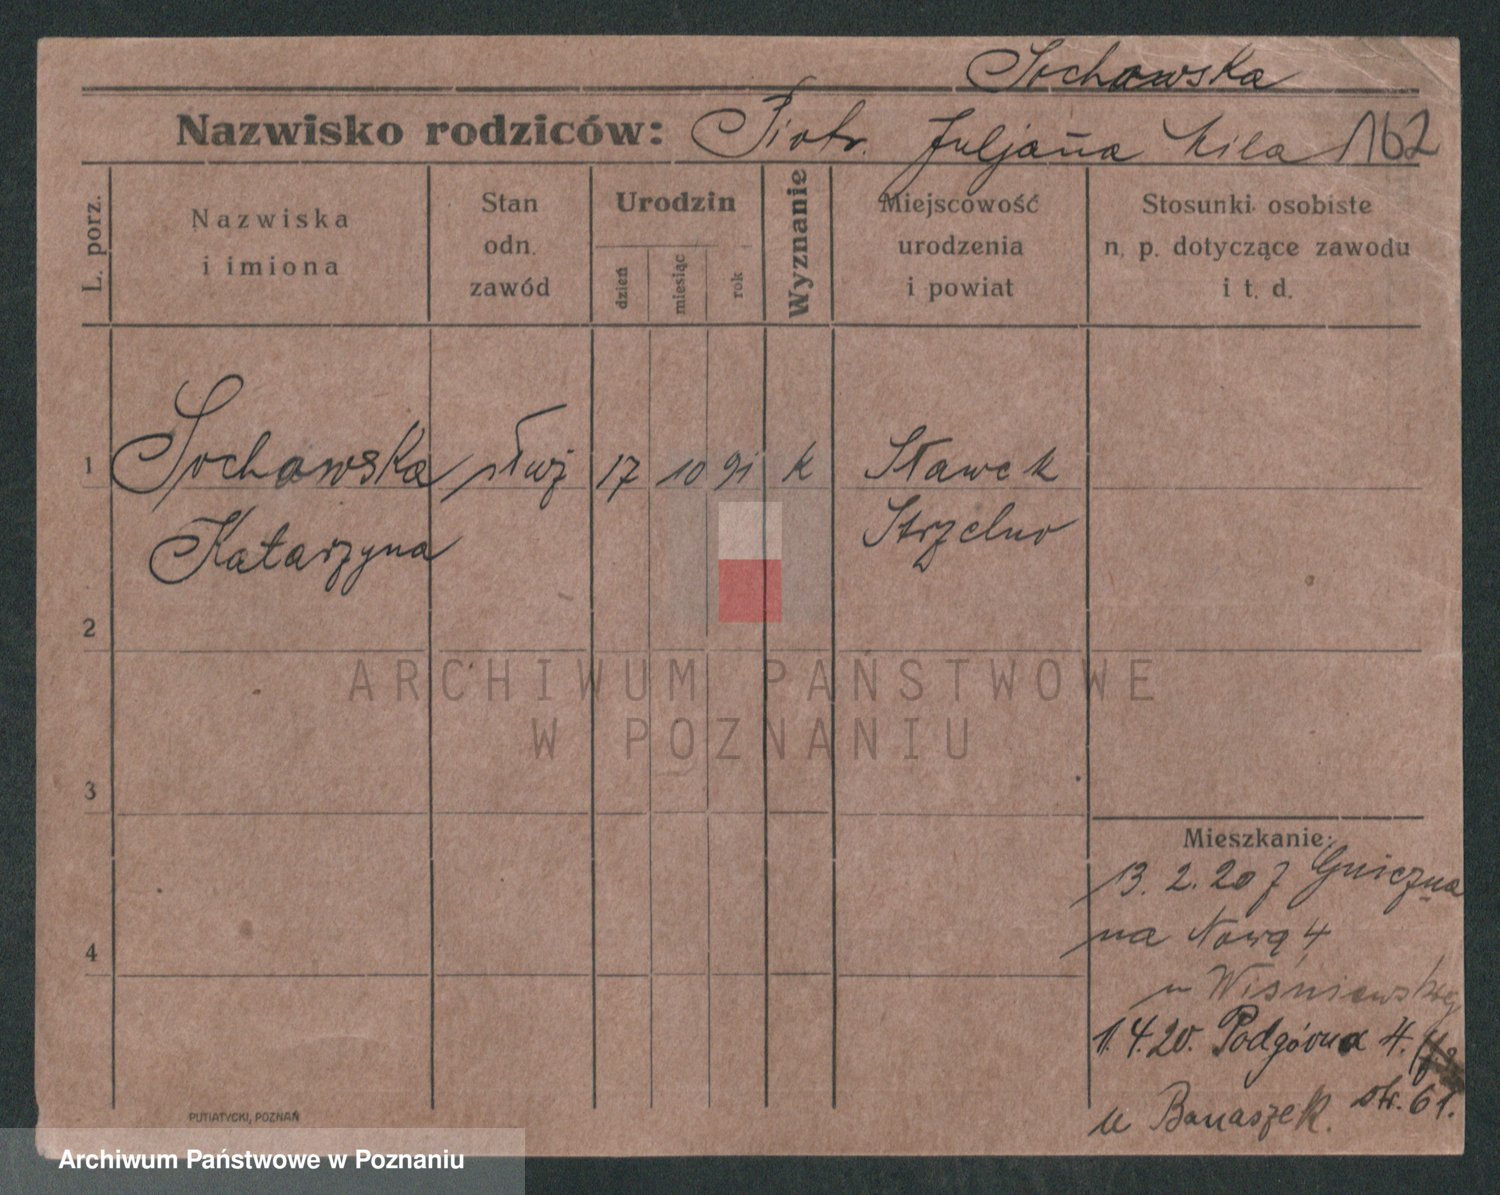 Sochawska
Nazwisko rodziców: Piotr. Juljanna Lila 162
L. porz.
Nazwiska i imiona
Stan odn. zawód
Urodzin
dzień
miesiąc
rok
Wyznanie
Miejscowość urodzenia i powiat
Stosunki osobiste n. p. dotyczące zawodu i t. d.
1 Sochawska służ 17 10 91 k Sławek
Katarzyna Strzelno
2
ARCHIWUM PAŃSTWOWE
W POZNANIU
3
Mieszkanie:
13. 2. 20 z Gniezna
na Nową 4
u Wiśniewskiej
1.4.20. Podgórna 4.
u Banaszek. str. 61.
4
PUTIATYCKI, POZNAŃ
Archiwum Państwowe w Poznaniu